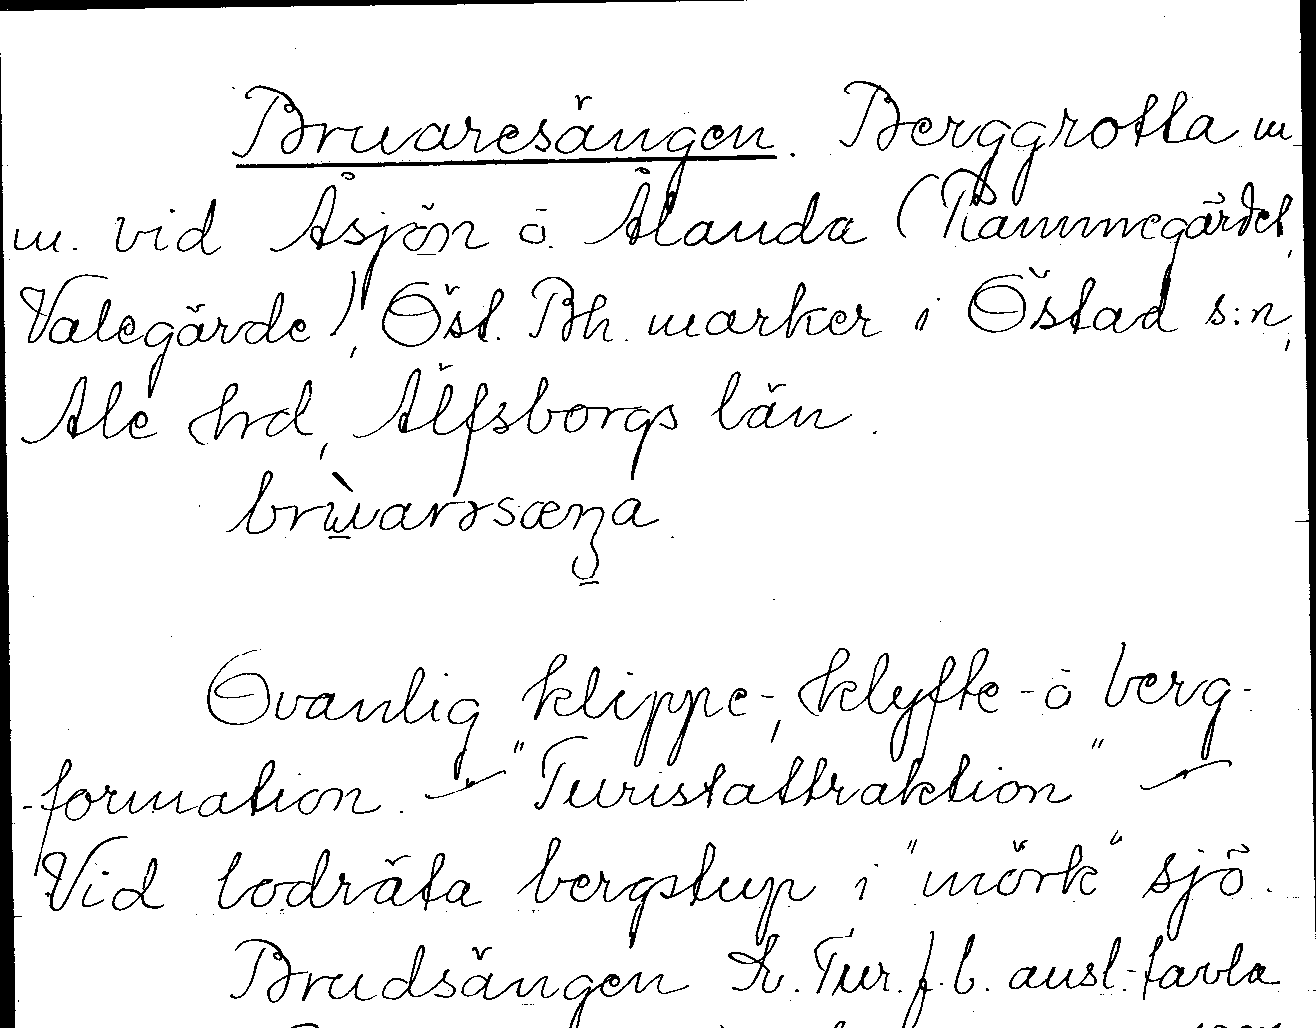 Bruaresängen. Berggrotta m
m. vid Åsjön ö. Ålanda (Rammegärdet,
Valegärde), Öst. Bh. marker i Östad s:n,
Ale hrd, Älfsborgs län.
brùarəsæŋa
Ovanlig klippe-, klyfte- o berg-
-formation. — "Turistattraktion" —
Vid lodräta bergstup i "mörk" sjö.
Brudsängen Sv. Tur. f. b. ansl.-tavla